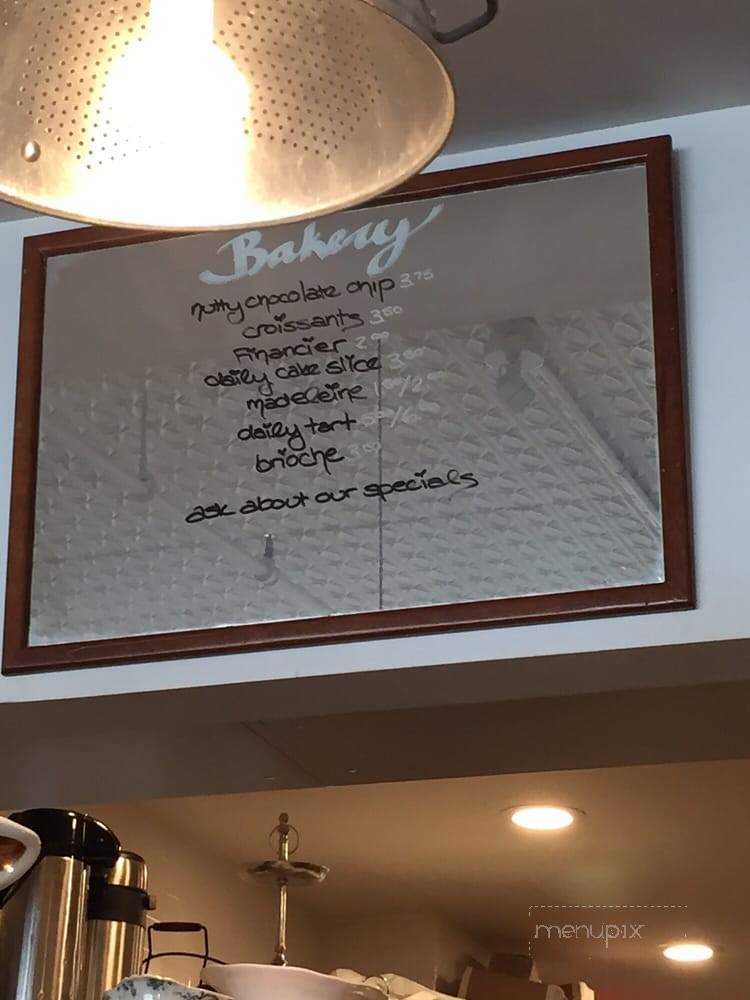 Bakery
nutty chocolate chip 3.75
croissants 3.50
Financier 2.00
daily cake slice
madeleine
daily tart
brioche
ask about our specials
menupix